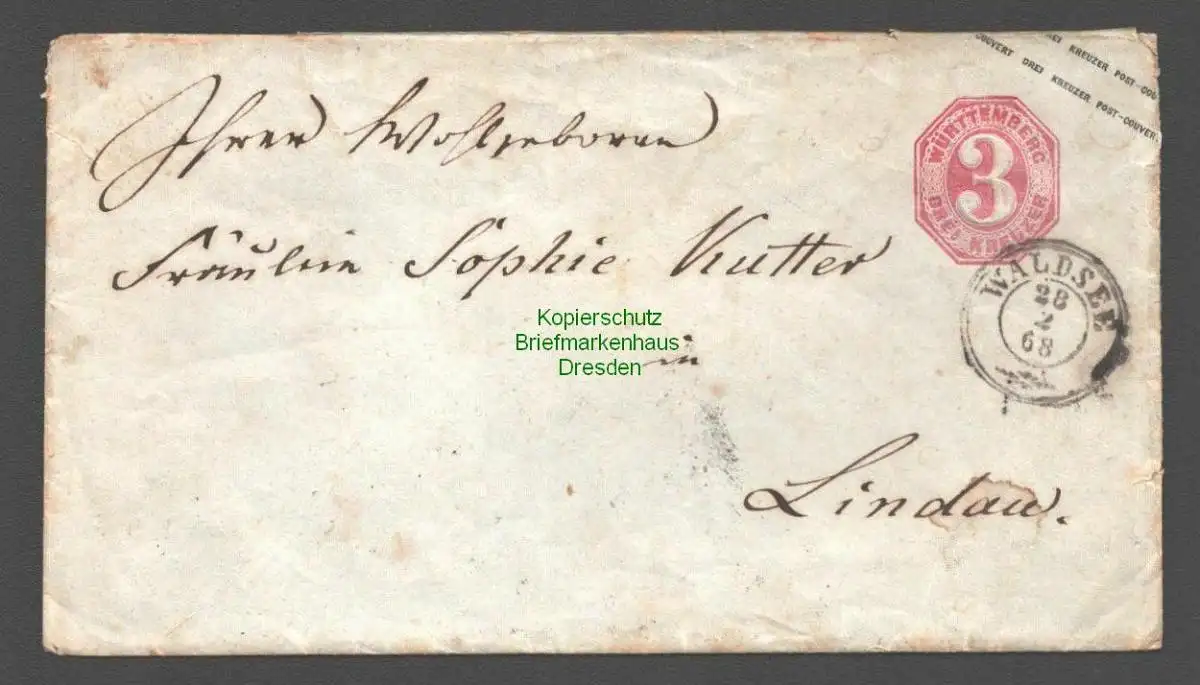 EI KREUZER POST-COU
OUVERT DREI KREUZER POST-COUVER
WÜRTTEMBERG
3
DREI KREUZER
Ihrer Wohlgeboren
Fräulein Sophie Kutter
in
Lindau.
WALDSEE
28
2
68
Kopierschutz
Briefmarkenhaus
Dresden